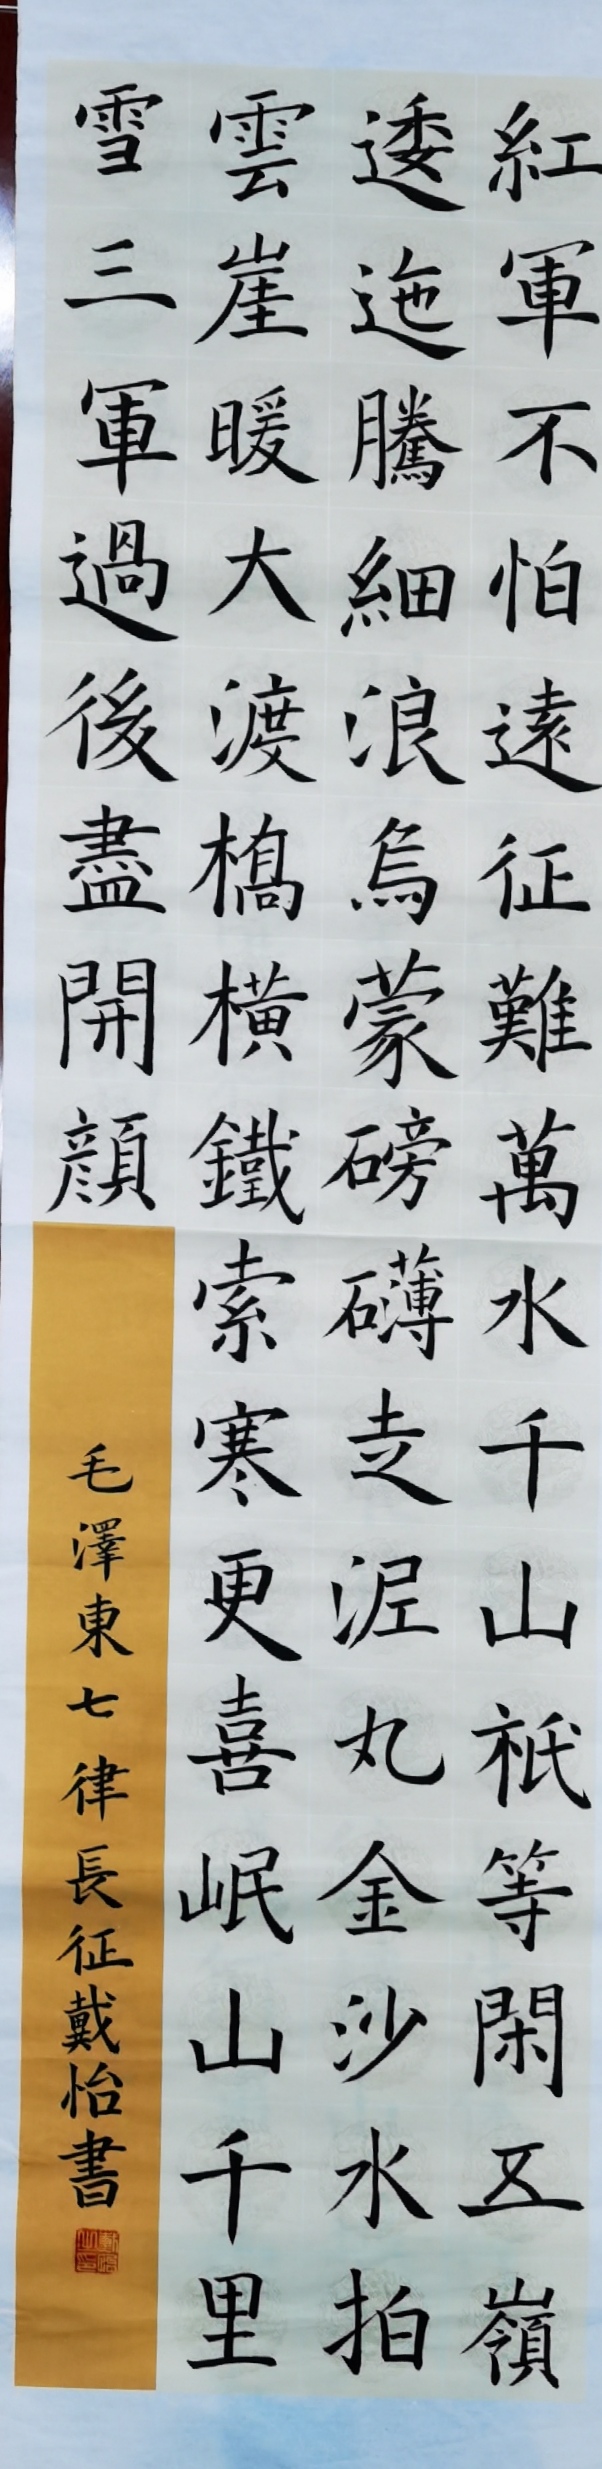 紅軍不怕遠征難萬水千山祇等閑五嶺
逶迤騰細浪烏蒙磅礴走泥丸金沙水拍
雲崖暖大渡橋橫鐵索寒更喜岷山千里
雪三軍過後盡開顔
毛澤東七律長征戴怡書